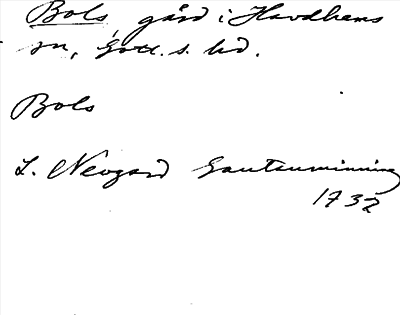 Bols, gård i Havdhems
sn, Gotl. s. hd.
Bols
L. Neogard Gautauminning
1732